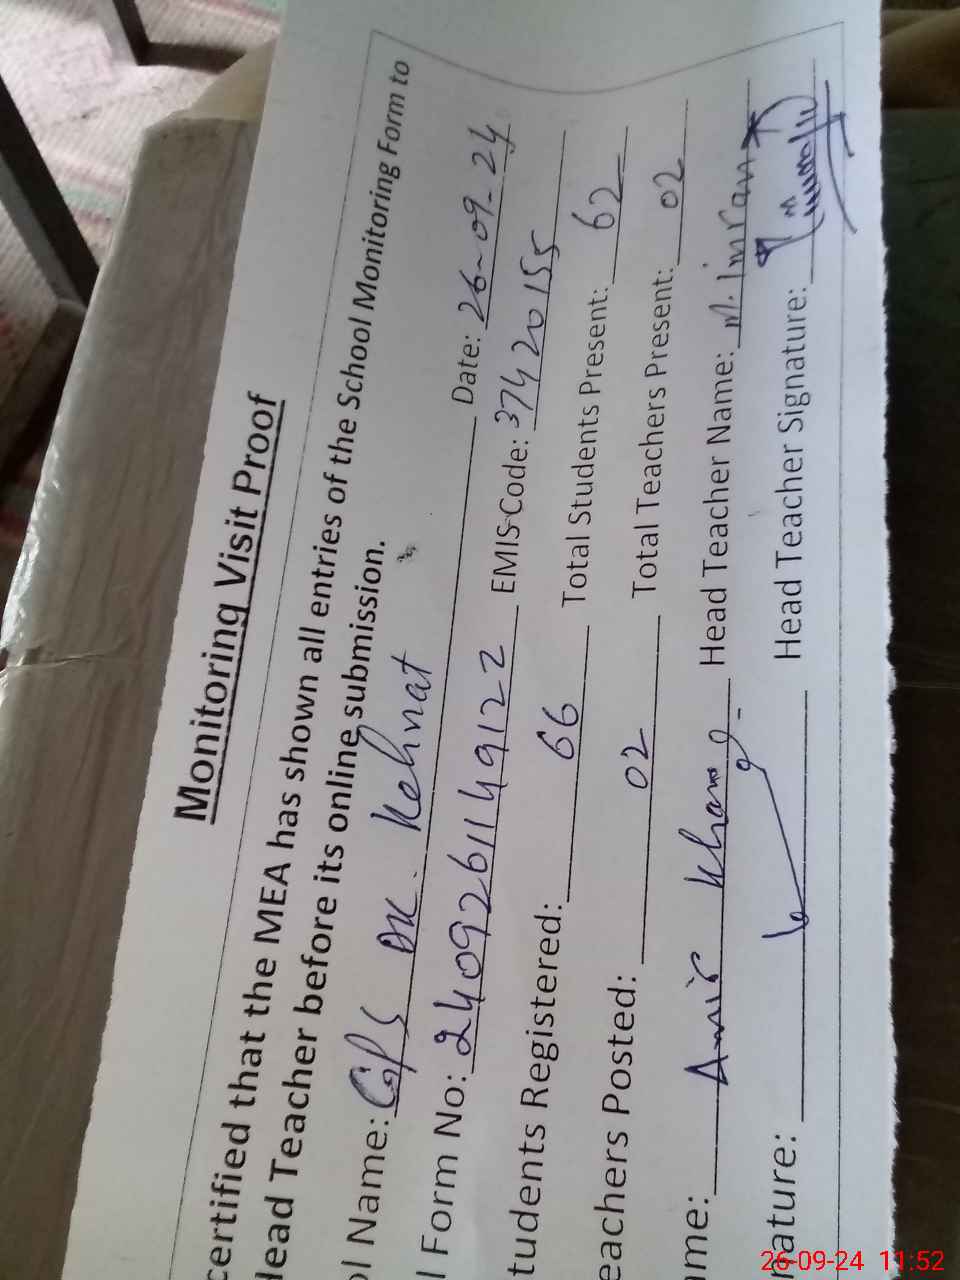 Monitoring Visit Proof
certified that the MEA has shown all entries of the School Monitoring Form to
Head Teacher before its online submission.
ol Name: GPS DK. Kehnat Date: 26-09-24
l Form No: 2409261149122 EMIS Code: 37420155
tudents Registered: 66 Total Students Present: 62
eachers Posted: 02 Total Teachers Present: 02
ame: Amir Khan Head Teacher Name: M. Imran
nature: Head Teacher Signature:
26-09-24 11:52